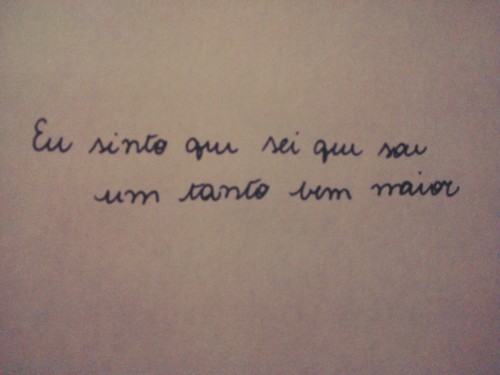 Eu sinto que sei que sou
um tanto bem maior